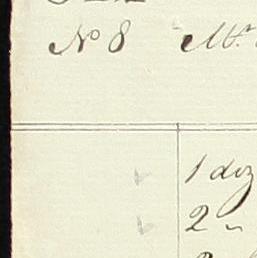 No 8 Mr.
1 doz
2 "